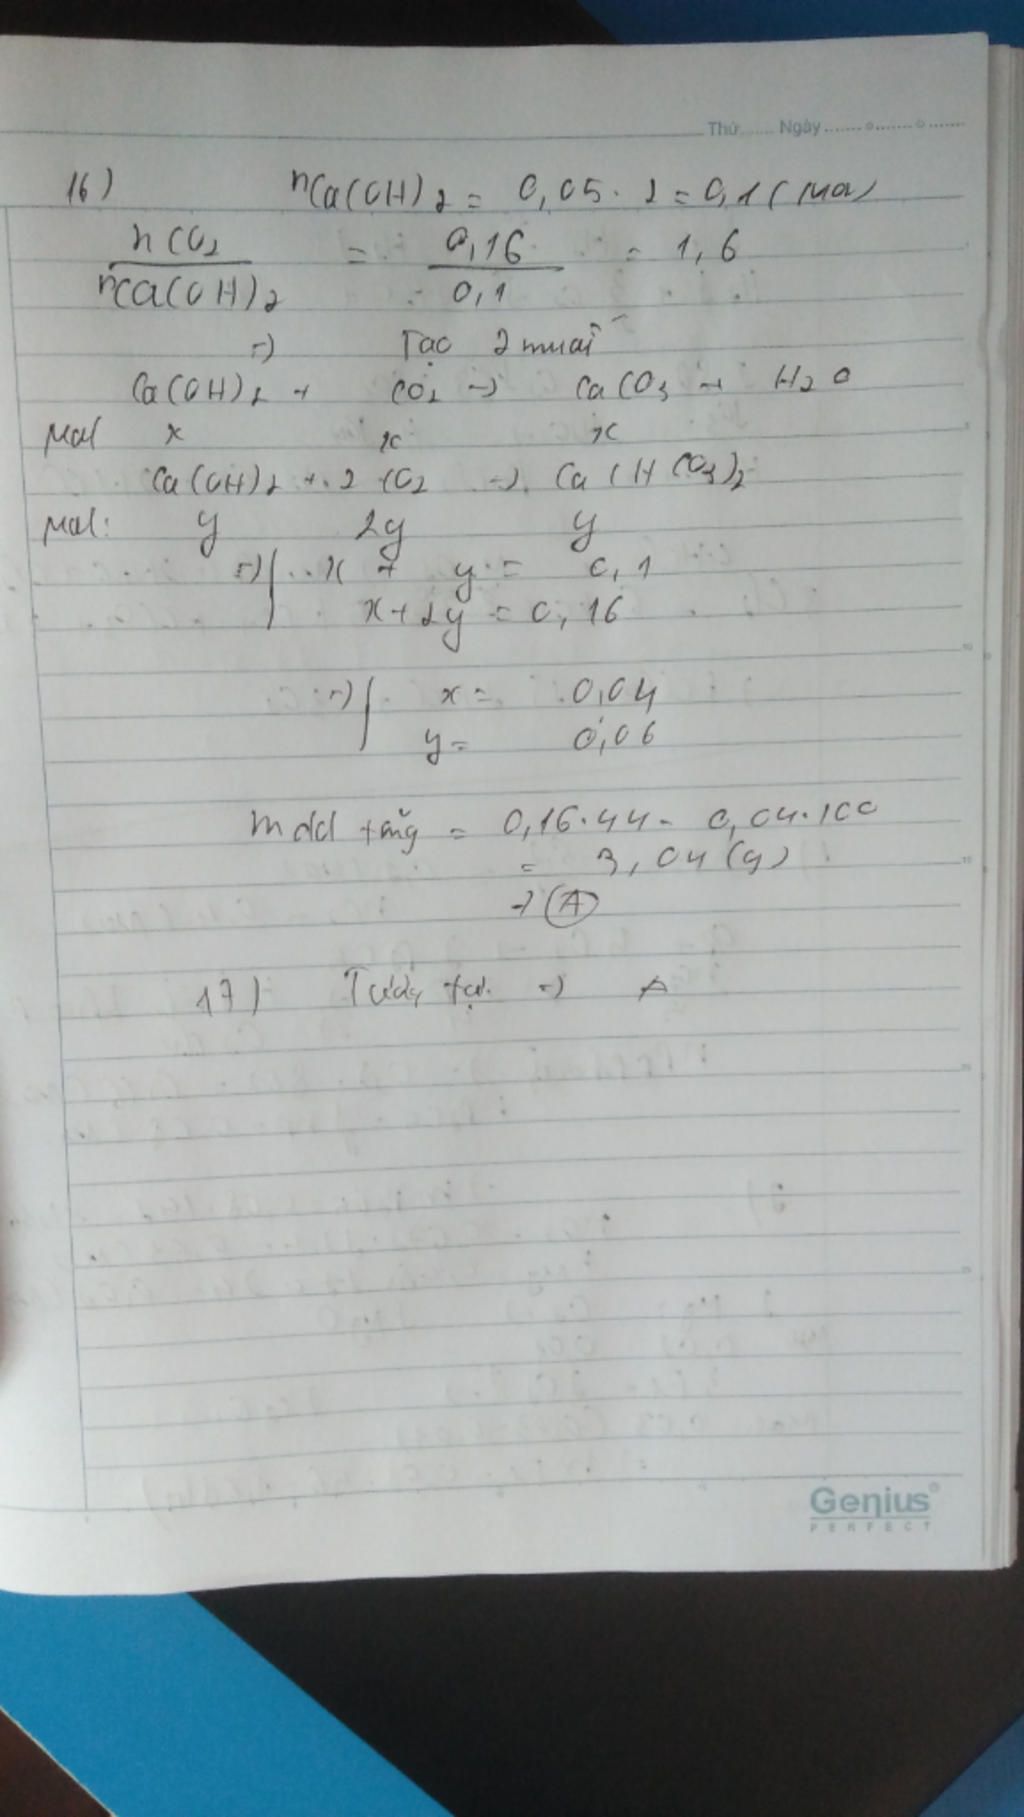 Thứ....... Ngày.......
16) nCa(OH)2 = 0,05 . 2 = 0,1 (mol)
nCO2 / nCa(OH)2 = 0,16 / 0,1 = 1,6
=) Tạo 2 muối
Ca(OH)2 + CO2 -> CaCO3 + H2O
Mol x x x
Ca(OH)2 + 2 CO2 -> Ca(HCO3)2
Mol: y 2y y
=) x + y = 0,1
x + 2y = 0,16
=) x = 0,04
y = 0,06
mdd tăng = 0,16.44 - 0,04.100
= 3,04 (g)
-> (A)
17) Tương tự =) A
Genius
PERFECT